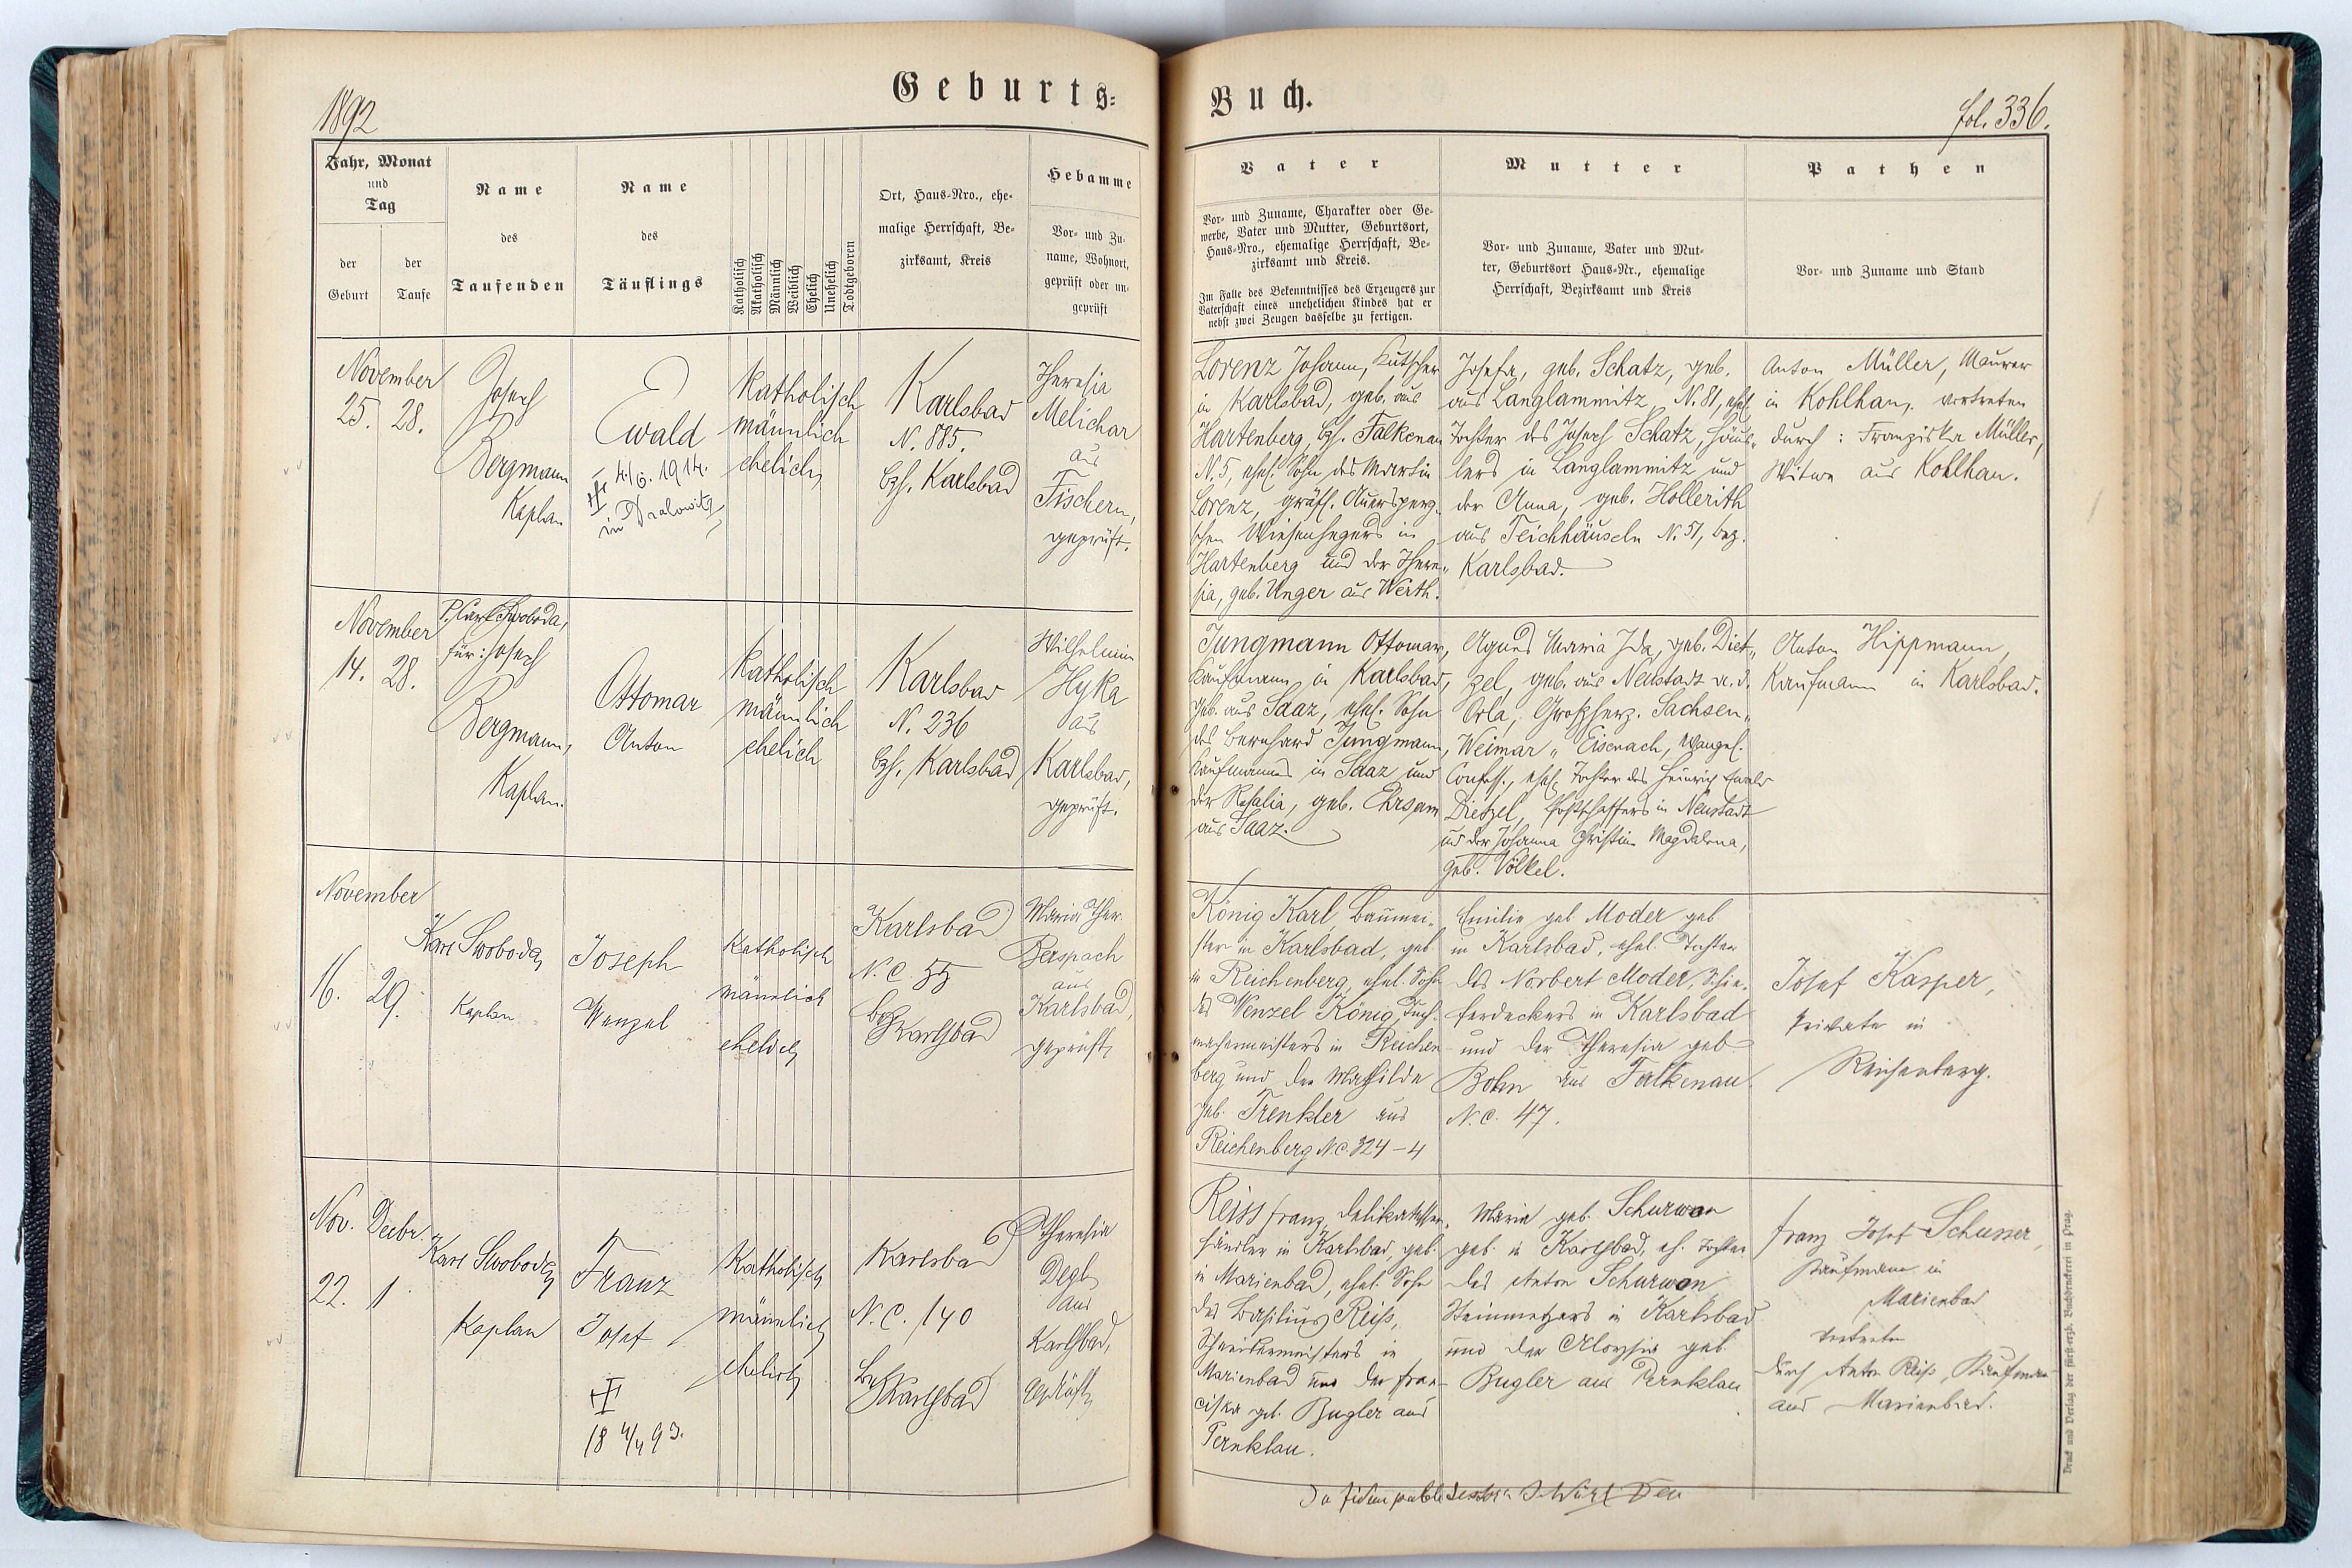 1892
Geburts-
Buch.
fol. 336.
Jahr, Monat
und
Tag
der
Geburt
der
Taufe
Name
des
Taufenden
Name
des
Täuflings
Katholisch
Akatholisch
Männlich
Weiblich
Ehelich
Unehelich
Todtgeboren
Ort, Haus-Nro., ehe-
malige Herrschaft, Be-
zirksamt, Kreis
Hebamme
Vor- und Zu-
name, Wohnort,
geprüft oder un-
geprüft
Vater
Vor- und Zuname, Charakter oder Ge-
werbe, Vater und Mutter, Geburtsort,
Haus-Nro., ehemalige Herrschaft, Be-
zirksamt und Kreis.
Im Falle des Bekenntnisses des Erzeugers zur
Vaterschaft eines unehelichen Kindes hat er
nebst zwei Zeugen dasselbe zu fertigen.
Mutter
Vor- und Zuname, Vater und Mut-
ter, Geburtsort Haus-Nr., ehemalige
Herrschaft, Bezirksamt und Kreis
Pathen
Vor- und Zuname und Stand
November
25. 28.
Josef
Bergmann
Kaplan
Ewald
4./6. 1914.
in
katholisch
männlich
ehelich
Karlsbad
N. 885.
Bzh. Karlsbad
Theresia
Melichar
aus
Fischern,
geprüft.
Lorenz Johann, Kutscher
in Karlsbad, geb. aus
Hartenberg, Bzh. Falkenau
N. 5, ehel. Sohn des Martin
Lorenz, gräfl. Auersperg-
schen Wiesenhegers in
Hartenberg und der There-
sia, geb. Unger aus Werth.
Josefa, geb. Schatz, geb.
aus Langlammitz N. 81, ehel.
Tochter des Josef Schatz, Häus-
lers in Langlammitz und
der Anna, geb. Hollerith
aus Teichhäuseln N. 51, bez.
Karlsbad.
Anton Müller, Maurer
in Kohlhau, vertreten
durch: Franziska Müller,
Witwe aus Kohlhau.
November
14. 28.
P. Karl Swoboda,
für: Josef
Bergmann,
Kaplan.
Ottomar
Anton
katholisch
männlich
ehelich
Karlsbad
N. 236
Bzh. Karlsbad
Wilhelmin
Hyka
aus
Karlsbad,
geprüft.
Jungmann Ottomar,
Kaufmann in Karlsbad,
geb. aus Saaz, ehel. Sohn
des Bernhard Jungmann,
Kaufmannes in Saaz und
der Rosalia, geb. Ehrsam
aus Saaz.
Agnes Maria Ida, geb. Diet-
zel, geb. aus Neustadt a. d.
Orla, Großherz. Sachsen-
Weimar-Eisenach, evangel.
Confess., ehel. Tochter des Heinrich Ewald
Dietzel, Postschaffers in Neustadt
und der Johanna Christine Magdalena,
geb. Völkel.
Anton Hippmann,
Kaufmann in Karlsbad.
November
16. 29.
Karl Swoboda
Kaplan
Joseph
Wenzel
katholisch
männlich
ehelich
Karlsbad
N. C. 55
bz. Karlsbad
Maria Ther.
Berspach
aus
Karlsbad,
geprüft
König Karl, Baumei-
ster in Karlsbad, geb.
in Reichenberg, ehel. Sohn
des Wenzel König, Tuch-
machermeisters in Reichen-
berg und der Mathilde
geb. Trenkler aus
Reichenberg N. C. 324-4
Emilie geb. Moder geb
in Karlsbad, ehel. Tochter
des Norbert Moder, Schie-
ferdeckers in Karlsbad
und der Theresia geb.
Bohn aus Falkenau
N. C. 47.
Josef Kasper,
Private in
Reichenberg.
Nov. Decbr.
22. 1
Karl Swoboda
Kaplan
Franz
Josef
18 4/4 93.
Katholisch
männlich
ehelich
Karlsbad
N. C. 140
Bz. Karlsbad
Theresia
Degl
aus
Karlsbad,
geprüft
Reiss Franz, Delikatessen-
händler in Karlsbad, geb.
in Marienbad, ehel. Sohn
des Basilius Reiss,
Schneidermeisters in
Marienbad und der Fran-
ciska geb. Bugler aus
Pernklau.
Maria geb. Schurwon
geb. in Karlsbad, eh. Tochter
des Anton Schurwon
Steinmetzers in Karlsbad
und der Aloysia geb.
Bugler aus Pernklau
Franz Josef Schusser,
Kaufmann in
Marienbad
vertreten
durch Anton Reiss, Kaufmann
aus Marienbad.
Druck und Verlag der fürst-erzb. Buchdruckerei in Prag.